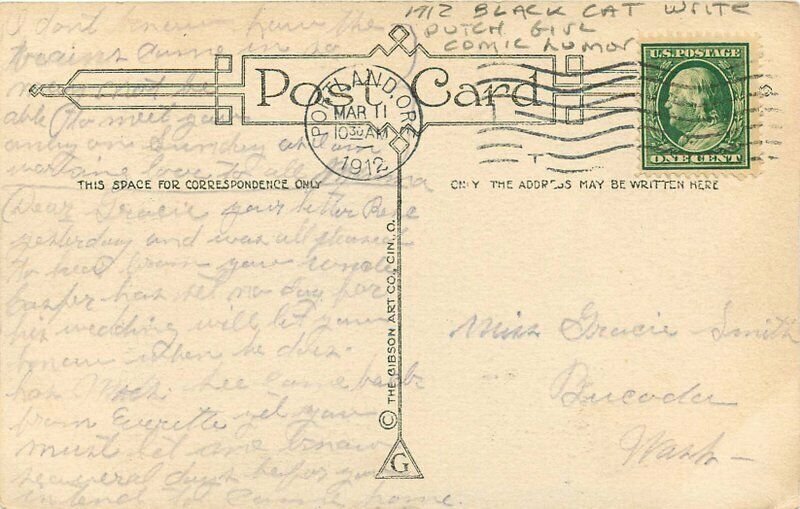 1912 BLACK CAT WRITE
DUTCH GIRL
COMIC HUMOR
Post Card
PORTLAND, ORE.
MAR 11
10 30 AM
1912
U.S. POSTAGE
ONE CENT
THIS SPACE FOR CORRESPONDENCE ONLY
ONLY THE ADDRESS MAY BE WRITTEN HERE
Dear Gracie your letter
yesterday and was all pleased
to hear from you uncle
Casper has set no day for
his wedding will let you
know when he does.
has come back
from Everette yet you
must let me know
several days befor you
intend to come home.
I dont know how the
trains come in so
may not be
able to meet you
only on Sunday
love to all
© THE GIBSON ART CO., CIN., O.
G
Miss Gracie Smith
Bucoda
Wash